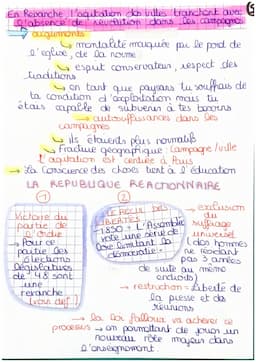 En Revanche l'agitation des villes tranchant avec
l'absence de revolution dans les campagnes
→ arguments
↳ mentalité marquée par le poid de
l'eglise, de la norme
↳ esprit conservateur, respect des
traditions
↳ en tant que paysans tu souffrais de
ta condition d'exploitation mais tu
étais capable de subvenir à tes besoins
→ autosuffisances dans les
campagnes
↳ ils étaient plus normatifs
↳ Fracture géographique : campagne/ville
L'agitation est centrée à Paris
↳ La conscience des choses tient à l'éducation
LA REPUBLIQUE REACTIONNAIRE
①
Victoire du
partie de
l'Ordre
→ Pour ce
partie les
élections
législatives
de 48 sont
une
revanche
(voir def)
②
LE RECUL DES
LIBERTES
→ 1850 : L'Assemblée
vote une série de
lois limitant la
démocratie.
→ exclusion
du
suffrage
universel
(des hommes
ne résidant
pas 3 années
de suite au même
endroits)
→ restriction : Liberté de
la presse et des
réunions
→ la loi Falloux va achever ce
processus → en permettant de jouer un
nouveau rôle majeur dans
l'enseignement.